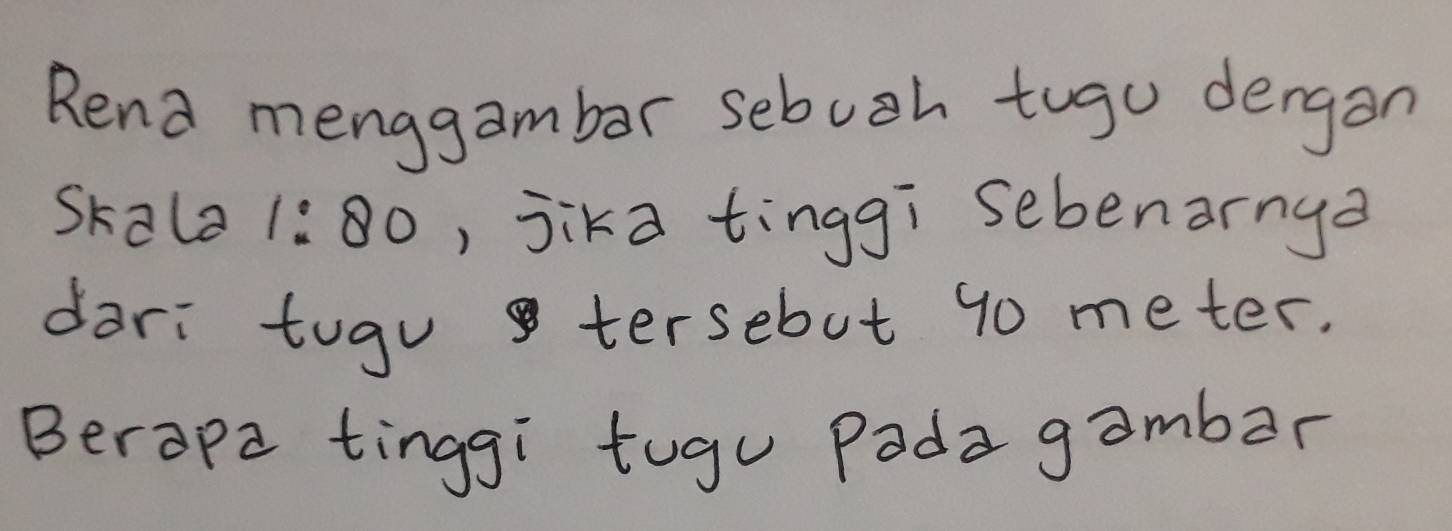 Rena menggambar sebuah tugu dengan
Skala 1:80, jika tinggi sebenarnya
dari tugu tersebut 40 meter.
Berapa tinggi tugu pada gambar